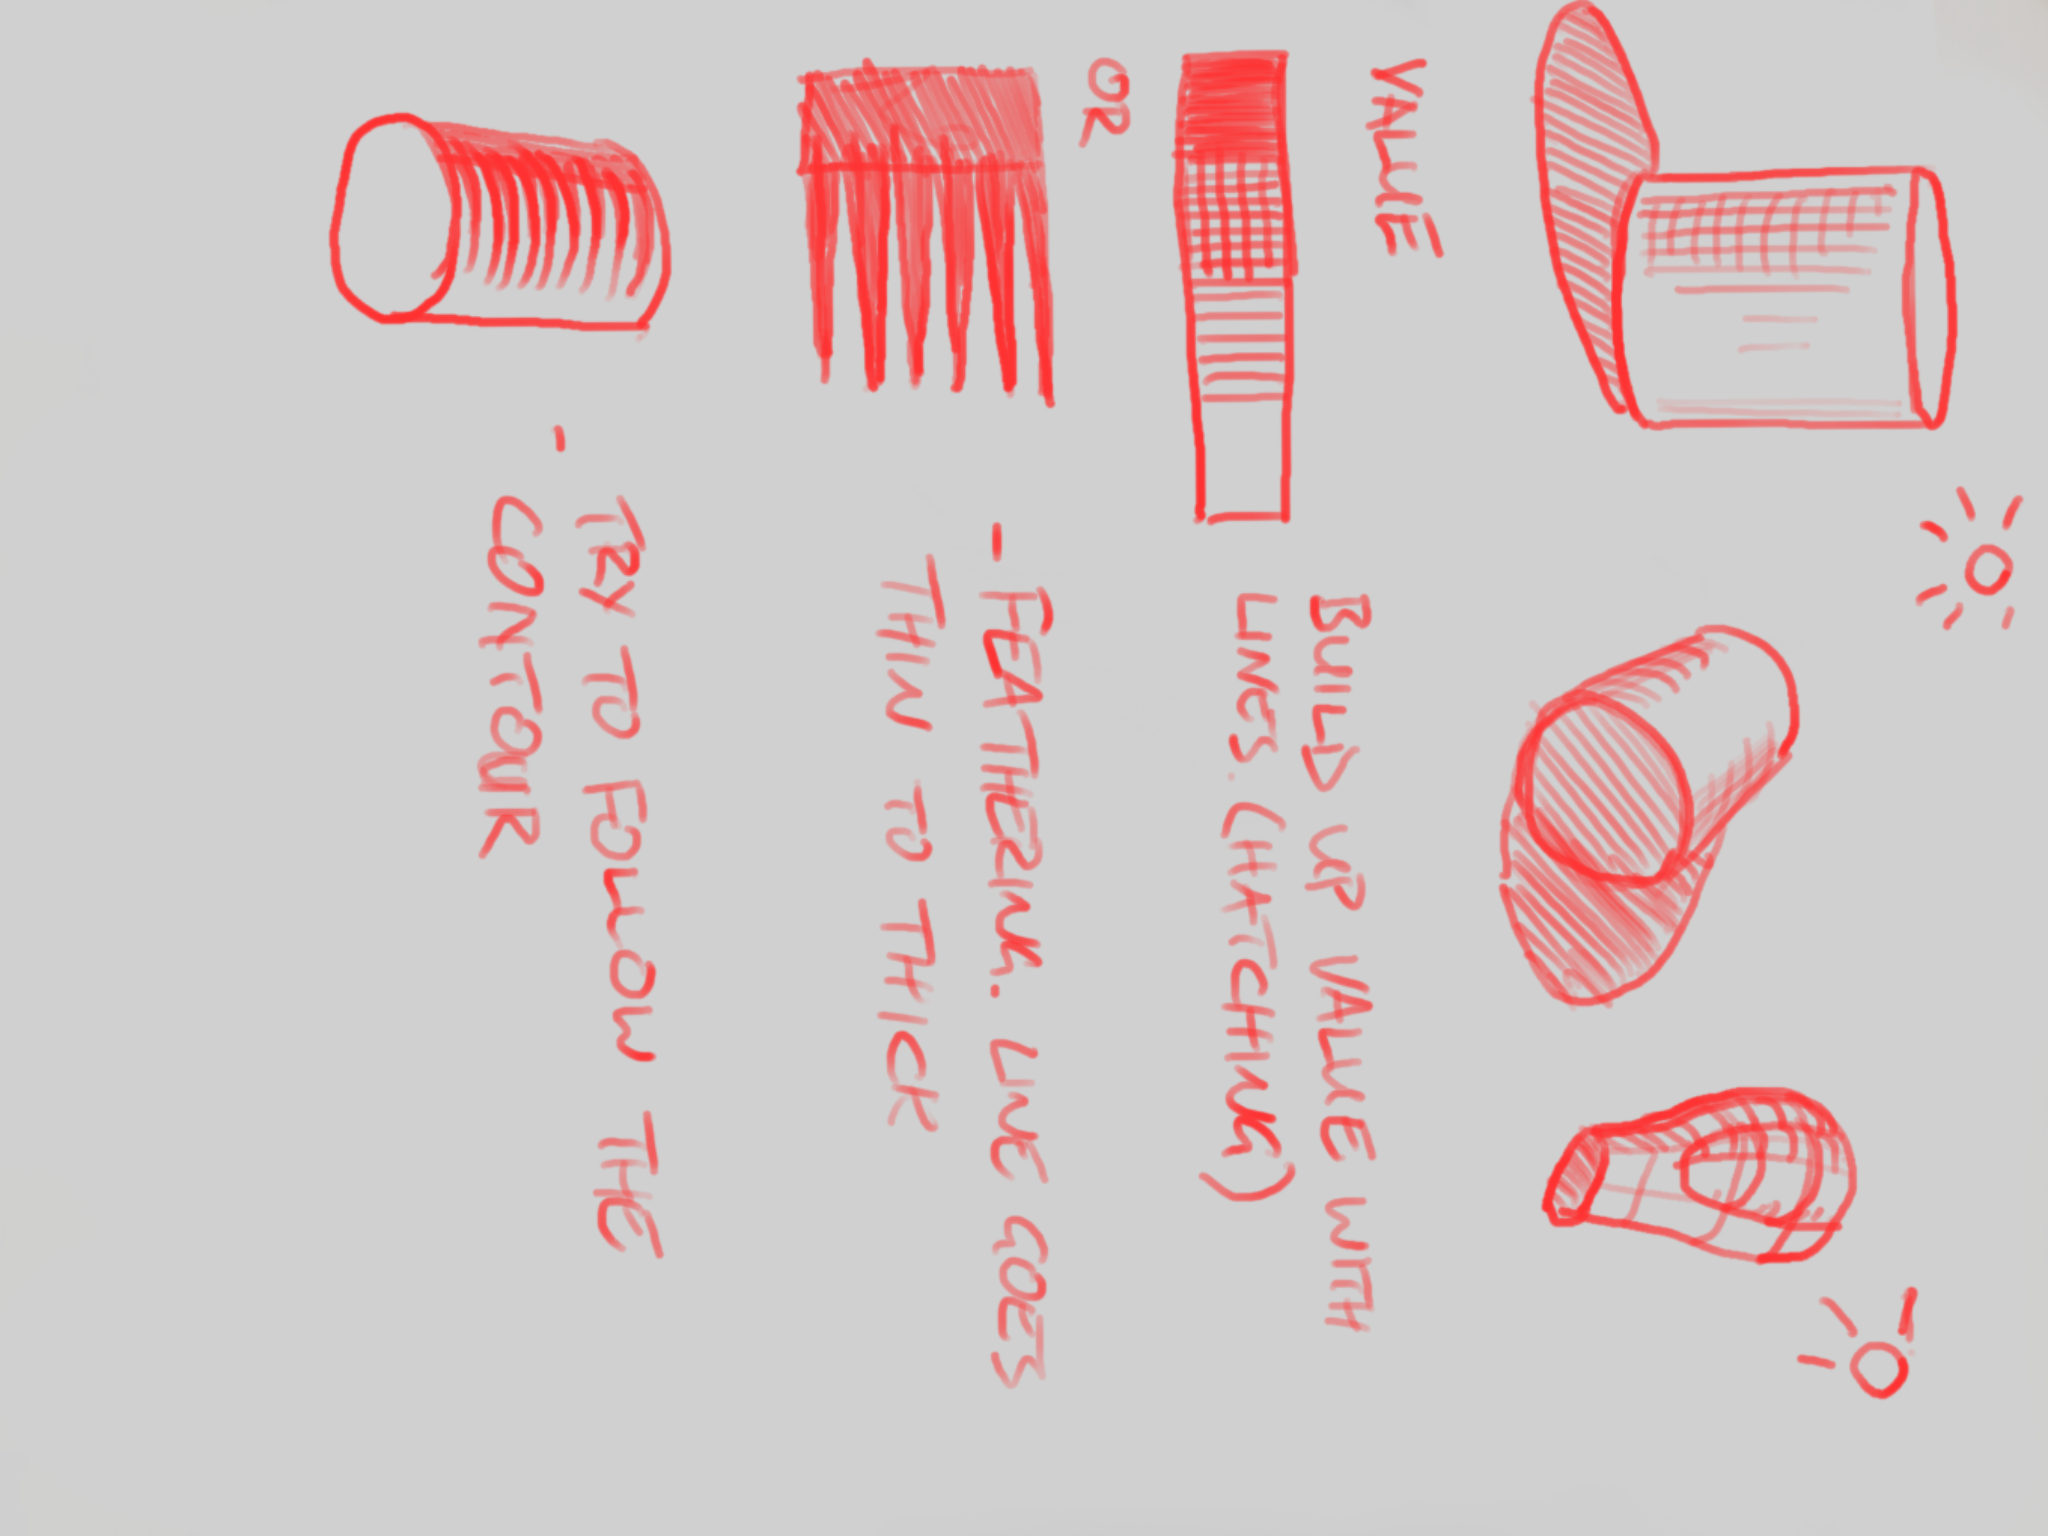 VALUE
BUILD UP VALUE WITH
LINES. (HATCHING)
OR
- FEATHERING. LINE GOES
THIN TO THICK
- TRY TO FOLLOW THE
CONTOUR